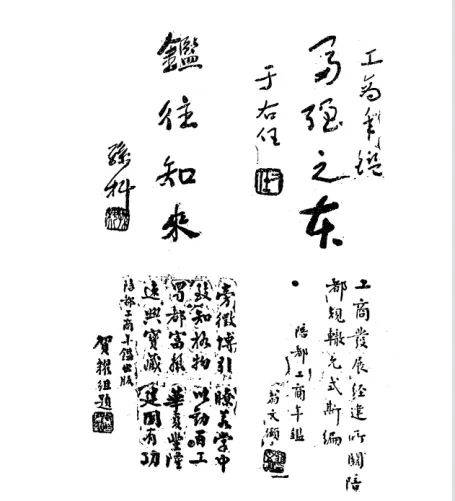 工商年鑑
富强之本
于右任
鑑往知來
孫科
工商發展經建所關陪
都規轍允式斯編
陪都工商年鑑
翁文灝
旁徵博引瞭若掌中
致知格物以勸百工
蜀都富饒華夏豐隆
速興寶藏建國有功
陪都工商年鑑出版
賀耀組題